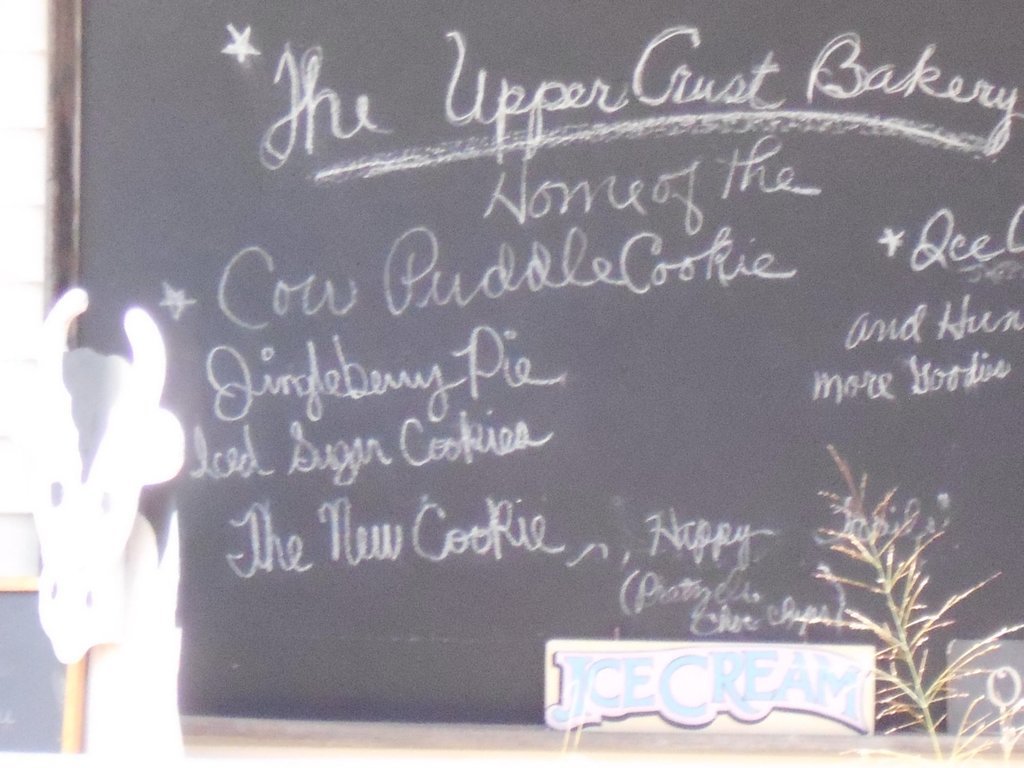 The Upper Crust Bakery
Home of the
Cow Puddle Cookie
Jingleberry Pie
Iced Sugar Cookies
The New Cookie
Happy
(Pretzels
Choc Chips)
Ice C
and Hun
more Goodies
ICE CREAM